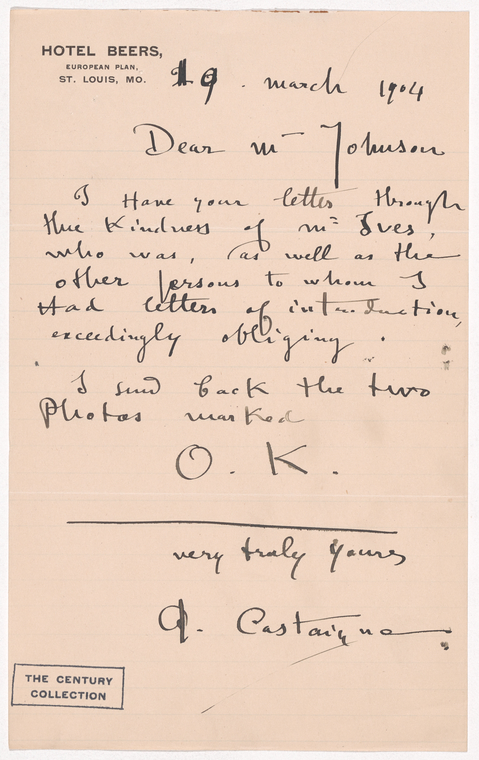 HOTEL BEERS,
EUROPEAN PLAN,
ST. LOUIS, MO.
19. march 1904
Dear Mr Johnson
I Have your letter through
the Kindness of Mr Ives,
who was, (as well as the
other persons to whom I
Had letters of introduction,
exceedingly obliging.
I send back the two
Photos marked
O. K.
very truly yours
A. Castaigne
THE CENTURY
COLLECTION